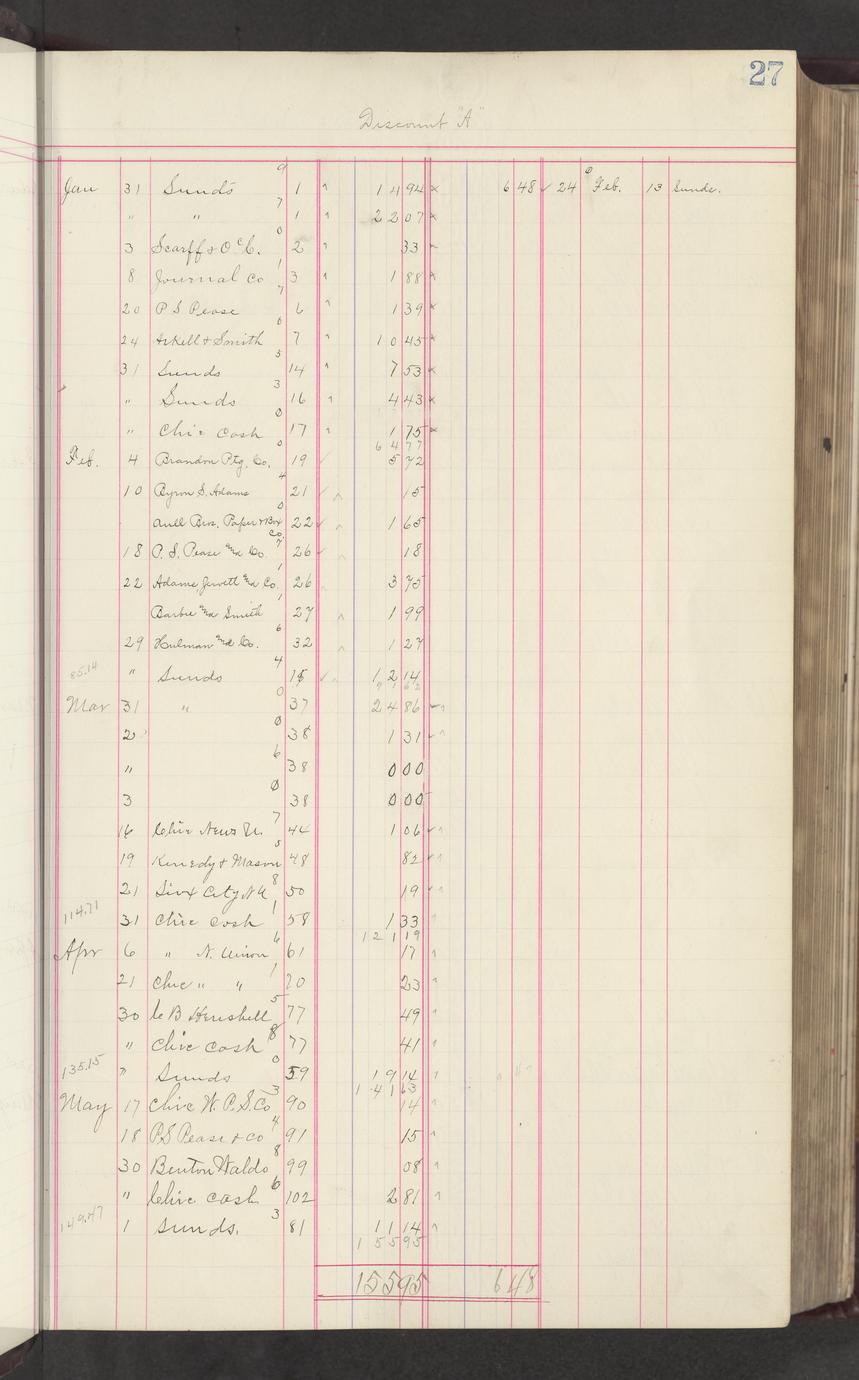 27
Discount "A"
9
Jan 31 Sunds 1 14 94 6 48 24 6 Feb. 13 Sunds.
7
" " 1 22 07
0
3 Scarff & O'C. 2 33
1
8 Journal Co 3 1 88
7
20 P S Pease 6 1 39
6
24 Arkell & Smith 7 10 45
5
31 Sunds 14 7 53
3
" Sunds 16 4 43
0
" Chic Cash 17 1 75
0 64 77
Feb. 4 Brandon Ptg. Co. 19 5 72
4
10 Byron S. Adams 21 15
0
Aull Bros. Paper & Box Co. 22 1 65
7
18 P. S. Pease and Co. 26 18
1
22 Adams, Jewett and Co. 26 3 75
1
Barbee and Smith 27 1 99
6
29 Hulman and Co. 32 1 27
4
85.14 " Sunds 15 12 14
0
Mar 31 " 37 24 86
0
2 38 1 31
6
" 38 0 00
0
3 38 0 00
7
16 Chic News U. 44 1 06
5
19 Kenedy & Mason 48 82
8
21 Siox City N U 50 19
1
114.71 31 Chic Cash 58 1 33
6 121 19
Apr 6 " N. Union 61 17
1
21 Chic " " 70 23
5
30 C B Henshell 77 49
8
" Chic Cash 77 41
0
135.15 " Sunds 59 19 14
3 141 63
May 17 Chic W. P. S. Co 90 14
4
18 P S Pease & Co 91 15
8
30 Benton Waldo 99 08
6
" Chic Cash 102 2 81
3
149.47 1 Sunds. 81 11 14
155 95
155 95 6 48